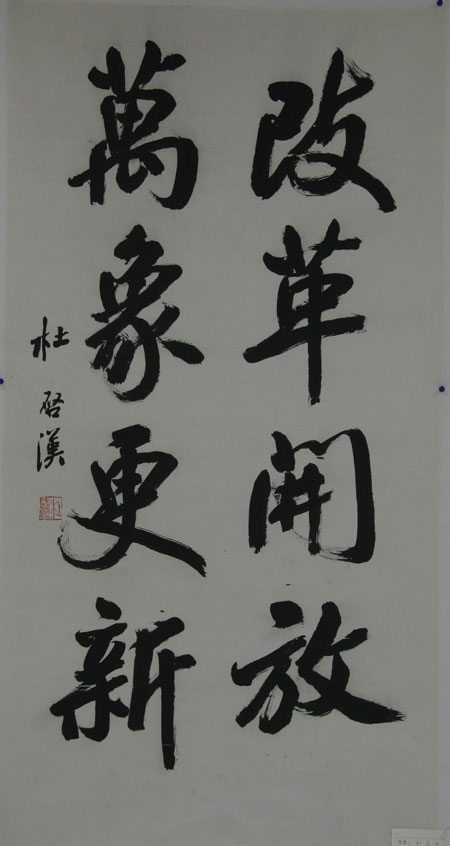 改革開放
萬象更新
杜啓漢